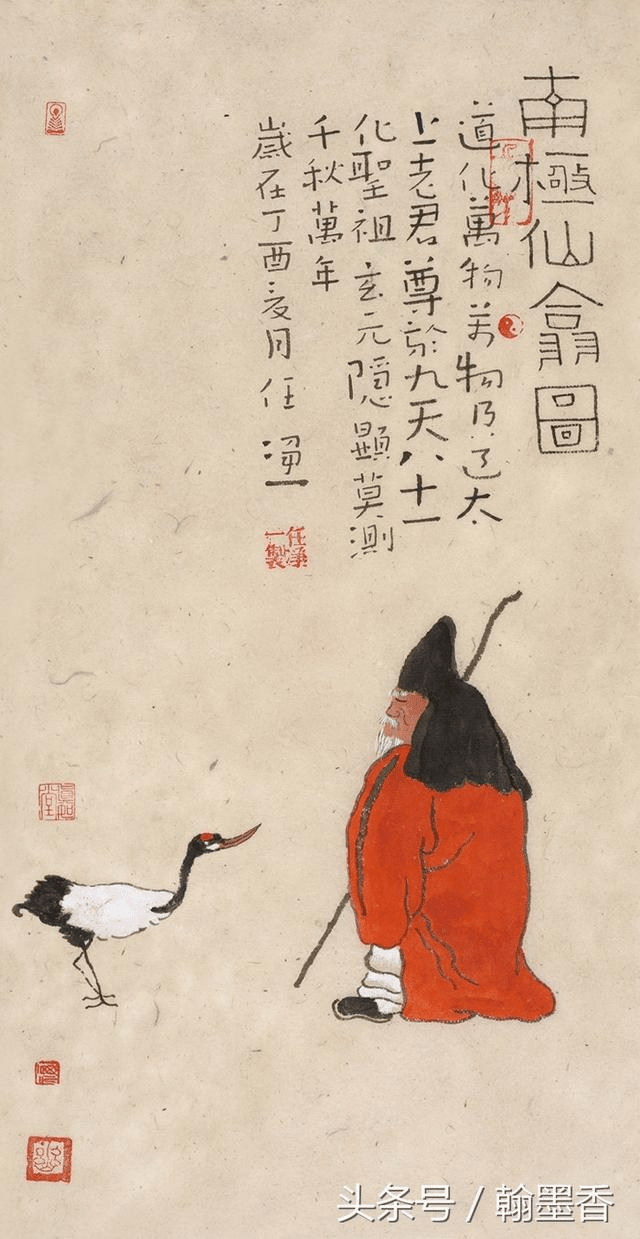 南極仙翁圖
道化萬物萬物乃道太
上老君尊於九天八十一
化聖祖玄元隐顯莫測
千秋萬年
歲在丁酉亥月任淨一
任淨一製
头条号 / 翰墨香